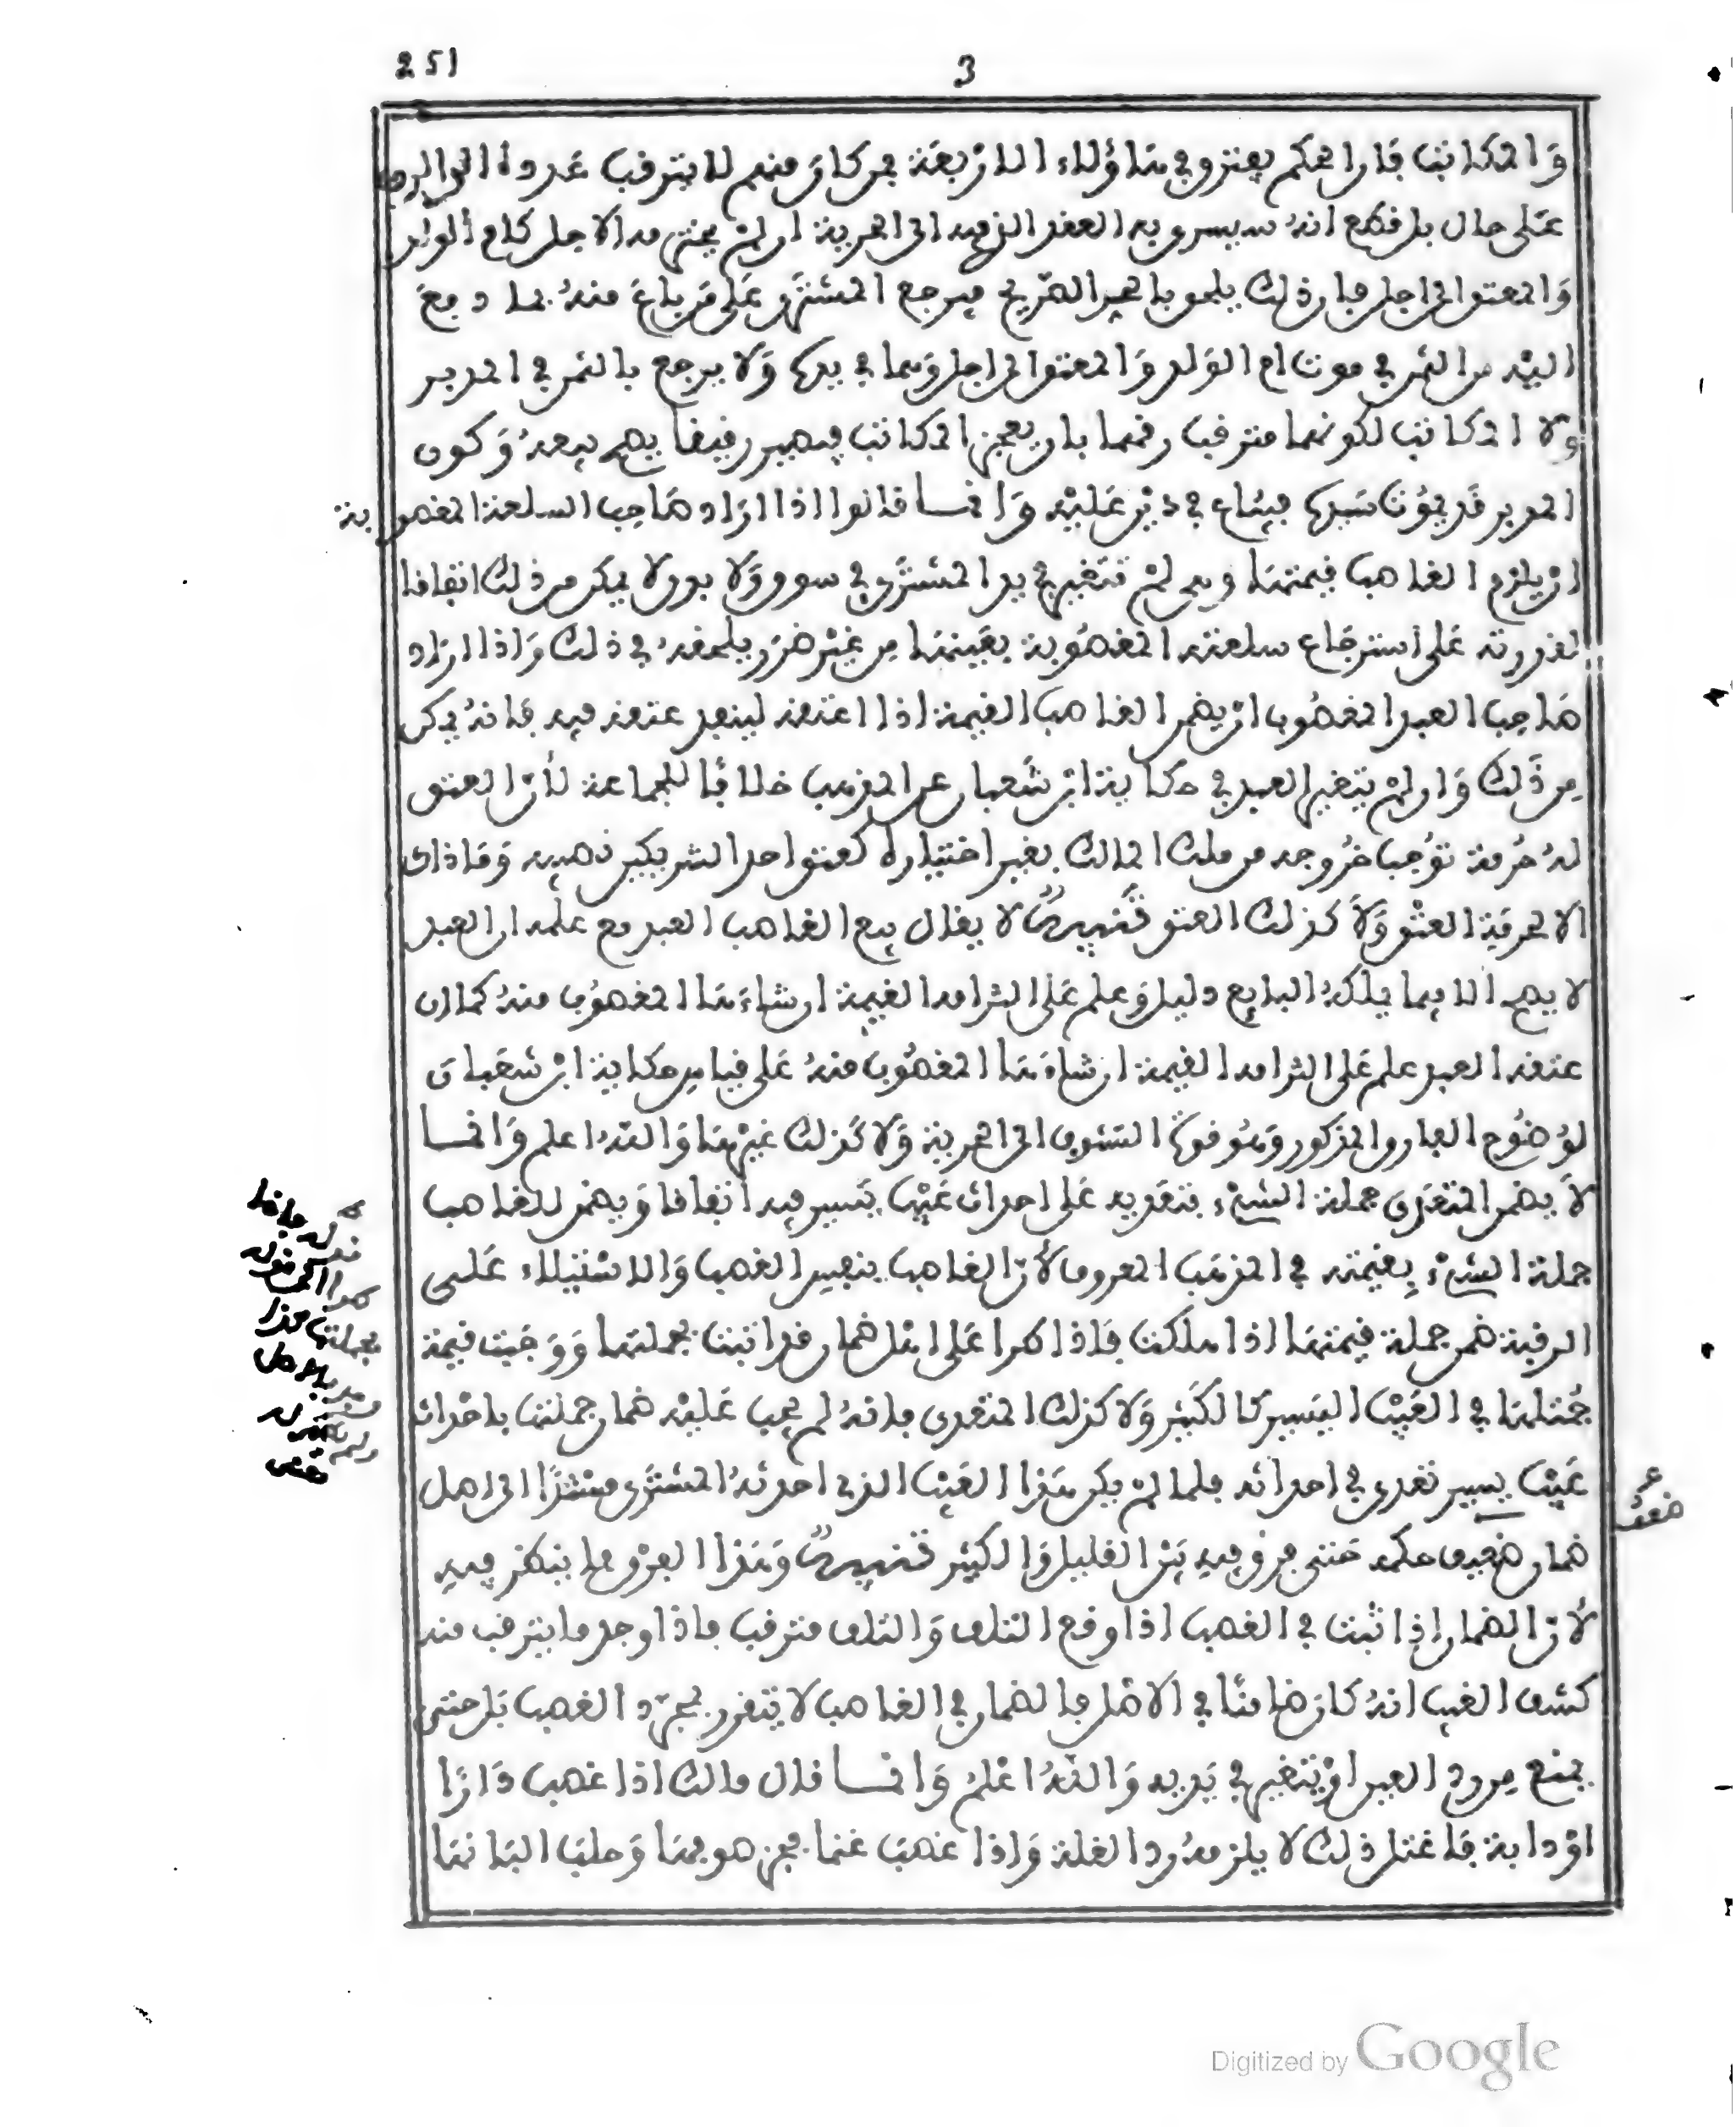 251
3
والمكاتب فان الحكم يفترق في هاؤلاء الاربعة فمن كان منهم لا يترقب عوده الى الرق
على حال بل قطع انه سيسرى به العقد الذي فيه الى الحرية ان لم يجنه مدالاجل كام الولد
والمعتق الى اجل فان ذلك يلحق بالحر الصريح فيرجع المشتري على من باع منه بما دفع
اليه من الثمن في موت ام الولد والمعتق الى اجل وهما في يده ولا يرجع بالثمن في المدبر
ولا المكاتب لكونهما مترقب رقهما بان يعجز المكاتب فيصير رقيقا يصح بيعه وكون
المدبر قد يموت سيده فيباع في دين عليه وانما قالوا اذا اراد صاحب السلعة المغصوبة
ان يلزم الغاصب قيمتها وهي لم تتغير في يد المشتري في سوق ولا بدن لا يمكن من ذلك اتفاقا
لقدرته على استرجاع سلعته المغصوبة بعينها من غير ضرر يلحقه في ذلك واذا اراد
صاحب العبد المغصوب ان يضمن الغاصب القيمة اذا اعتقه لينفذ عتقه فيه فانه يمكن
من ذلك وان لم يتغير العبد في حكاية ابن شعبان عن المذهب خلافا للجماعة لان العتق
له حرمة توجب خروجه من ملك المالك بغير اختياره كعتق احد الشريكين نصيبه وما ذاك
الا لحرمة العتق ولا كذلك العتق تنبيه لا يقال بيع الغاصب العبد مع علمه ان العبد
لا يصح الا فيما يملكه البايع دليل وعلم على التزامه القيمة ان شاءها المغصوب منه كما ان
عتقه العبد علم على التزامه القيمة ان شاءها المغصوب منه على قياس حكاية ابن شعبان
لوضوح الفارق المذكور وهو قوة التشوف الى الحرية ولا كذلك غيرها والله اعلم وانما
لا يضمن المتعدى جملة الشيء بتعديه على احداث عيب يسير فيه اتفاقا ويضمن للغاصب
جملة الشيء بقيمته في المذهب المعروف لان الغاصب بنفس الغصب والاستيلاء على
الرقبة ضمن جملة قيمتها اذا هلكت فاذا طرا على اصل ضمان قد اثبت بجملتها ووجبت قيمة
جملتها في العيب اليسير كالكثير ولا كذلك المتعدى فانه لم يجب عليه ضمان جملتها باحداثه
عيب يسير تعدى في احداثه فلما لم يكن هذا العيب الذي احدثه المشتري مستندا الى اصل
ضمان ضعف حكمه حتى فرق فيه بين القليل والكثير تنبيه وهذا الفرق مما ينظر فيه
لان الضمان اذا ثبت في الغصب اذا وقع التلف والتلف مترقب فاذا وجد ما يترقب منه
كشف الغيب انه كان ضامنا في الاصل فالضمان في الغاصب لا يتقرر بمجرد الغصب بل حتى
يمنع من رد العين او تتغير في يديه والله اعلم وانما قال مالك اذا غصب دارا
او دابة فاغتل ذلك لا يلزمه رد الغلة واذا غصب غنما فجز صوفها وحلب البانها
ضعف
Digitized by Google